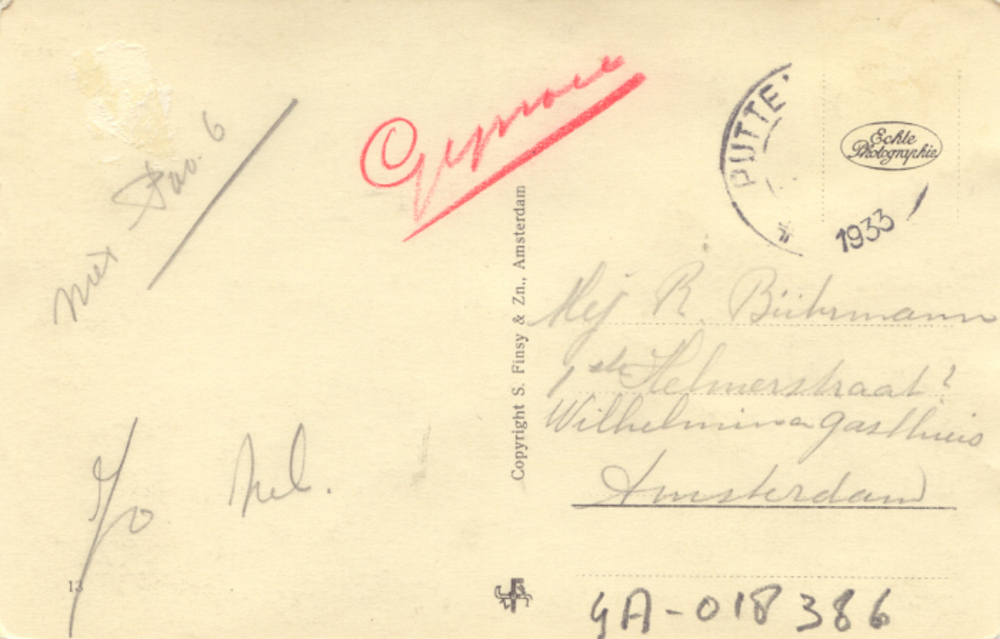 niet Pav. 6
PUTTE
1933
Echte
Photographie
Copyright S. Finsy & Zn., Amsterdam
Mej R. Bührmann
1ste Helmerstraat?
Wilhelmina gasthuis
Amsterdam
Jo Nel.
13
GA-018386